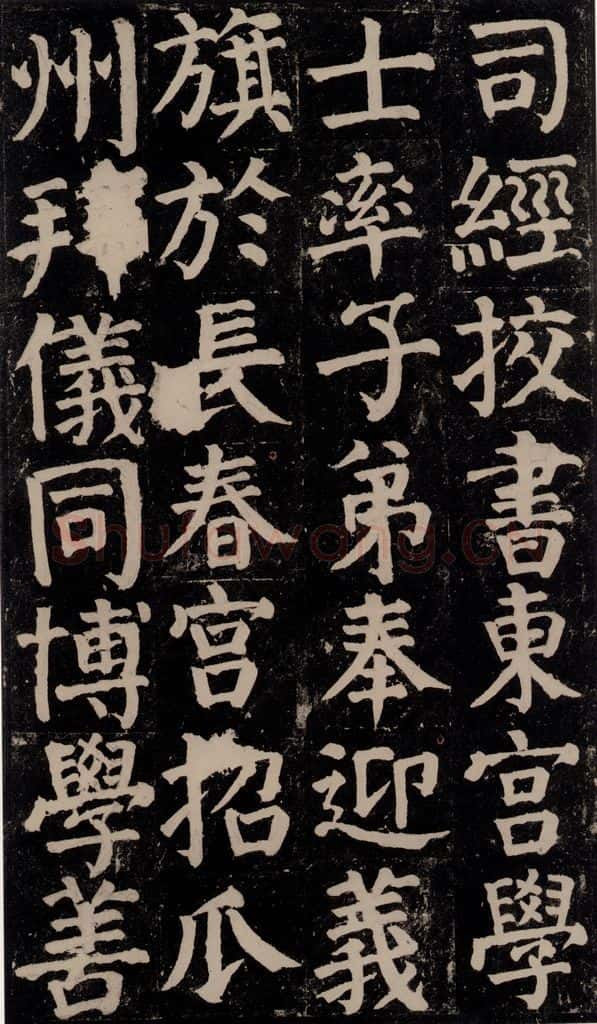 司經挍書東宮學
士率子弟奉迎義
旗於長春宮招瓜
州儀同博學善
Shufawang.cn